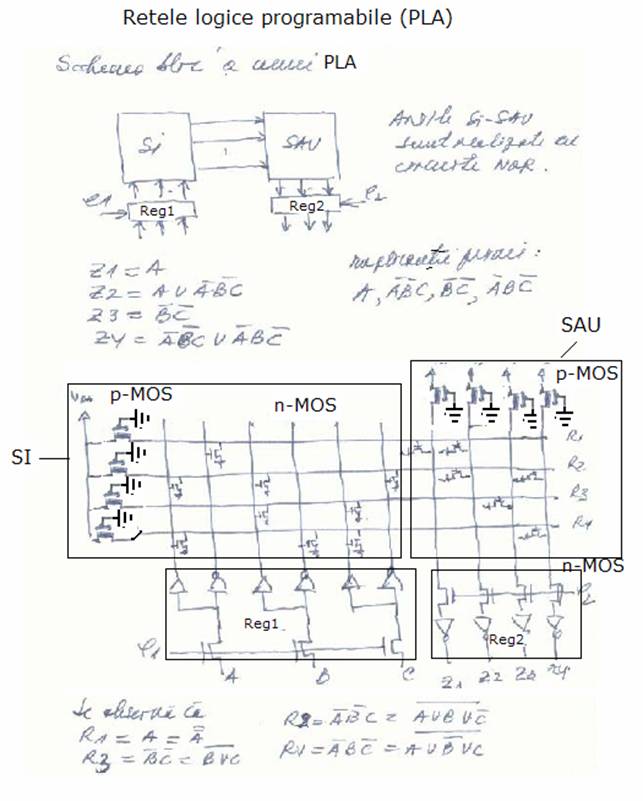 Retele logice programabile (PLA)
Schema bloc a unui PLA
SI
SAU
Reg1
Reg2
Ariile SI-SAU
sunt realizate cu
circuite NOR.
Z1 = A
Z2 = A ∪ A̅B̅C
Z3 = B̅C̅
Z4 = A̅B̅C ∪ A̅BC̅
A, A̅B̅C, B̅C̅, A̅BC̅
SAU
p-MOS
p-MOS
n-MOS
SI
R1
R2
R3
R4
n-MOS
Reg1
Reg2
A
B
C
Z1
Z2
Z3
Z4
Se observă că
R1 = A = A̿
R3 = B̅C̅ = B∪C
R2 = A̅B̅C = A∪B∪C̅
R4 = A̅BC̅ = A∪B̅∪C